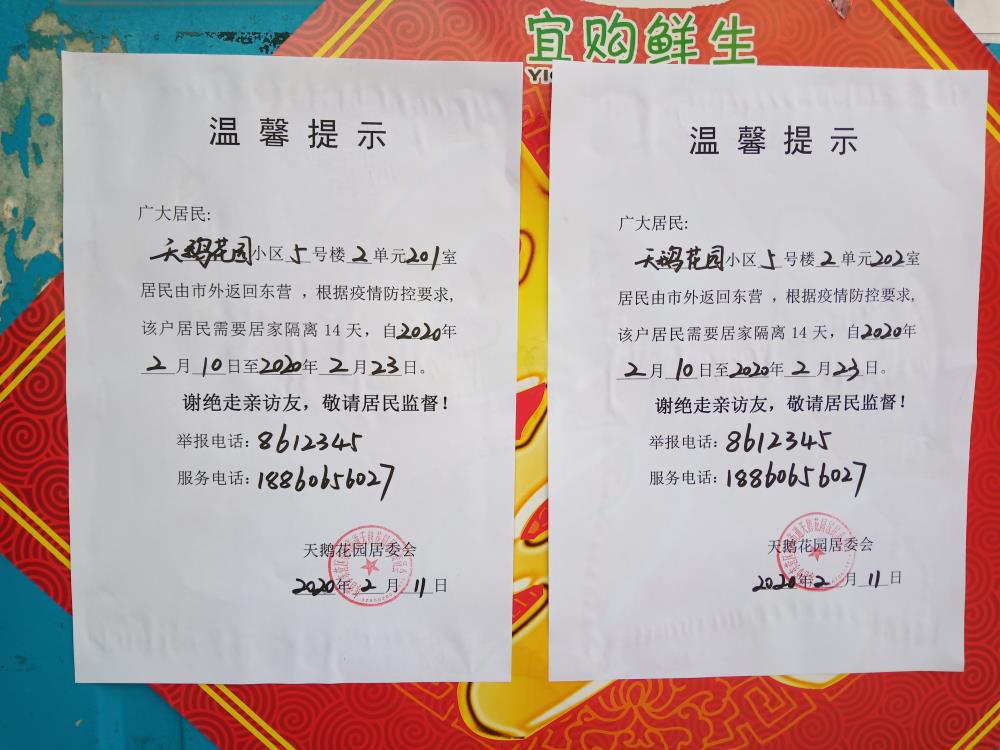 宜购鲜生
温馨提示
广大居民:
天鹅花园小区5号楼2单元201室
居民由市外返回东营，根据疫情防控要求,
该户居民需要居家隔离14天，自2020年
2月10日至2020年2月23日。
谢绝走亲访友，敬请居民监督！
举报电话: 8612345
服务电话: 18860656027
天鹅花园居委会
2020年2月11日
温馨提示
广大居民:
天鹅花园小区5号楼2单元202室
居民由市外返回东营，根据疫情防控要求,
该户居民需要居家隔离14天，自2020年
2月10日至2020年2月23日。
谢绝走亲访友，敬请居民监督！
举报电话: 8612345
服务电话: 18860656027
天鹅花园居委会
2020年2月11日